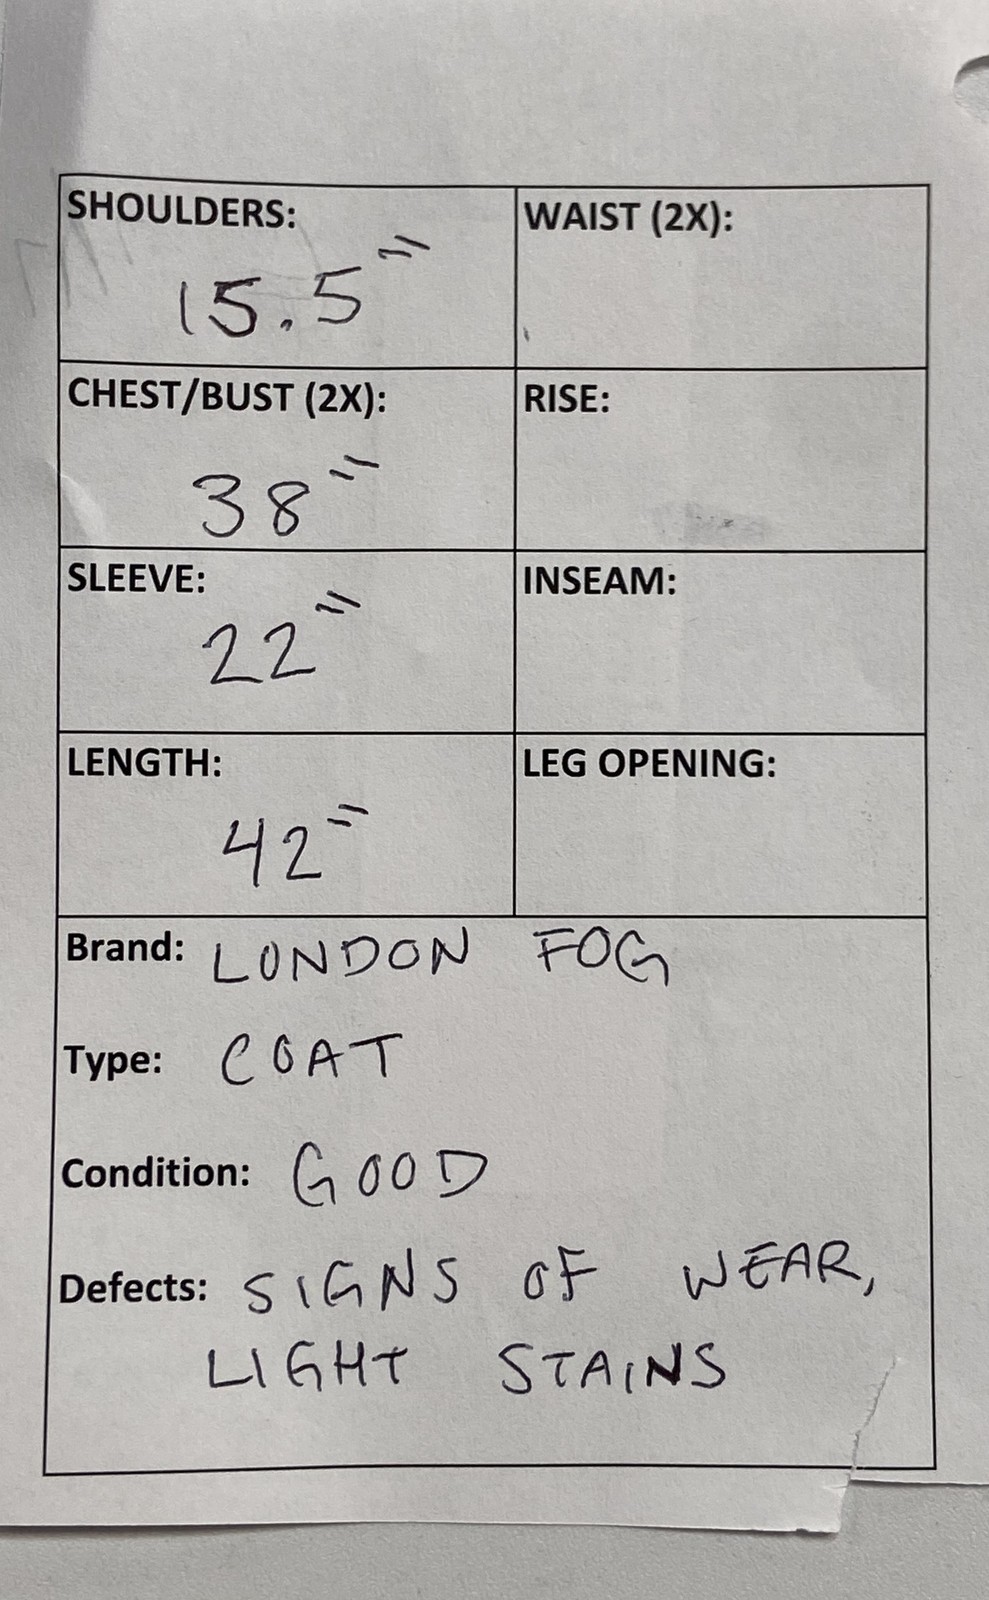 SHOULDERS:
15.5"
WAIST (2X):
CHEST/BUST (2X):
38"
RISE:
SLEEVE:
22"
INSEAM:
LENGTH:
42"
LEG OPENING:
Brand: LONDON FOG
Type: COAT
Condition: GOOD
Defects: SIGNS OF WEAR,
LIGHT STAINS